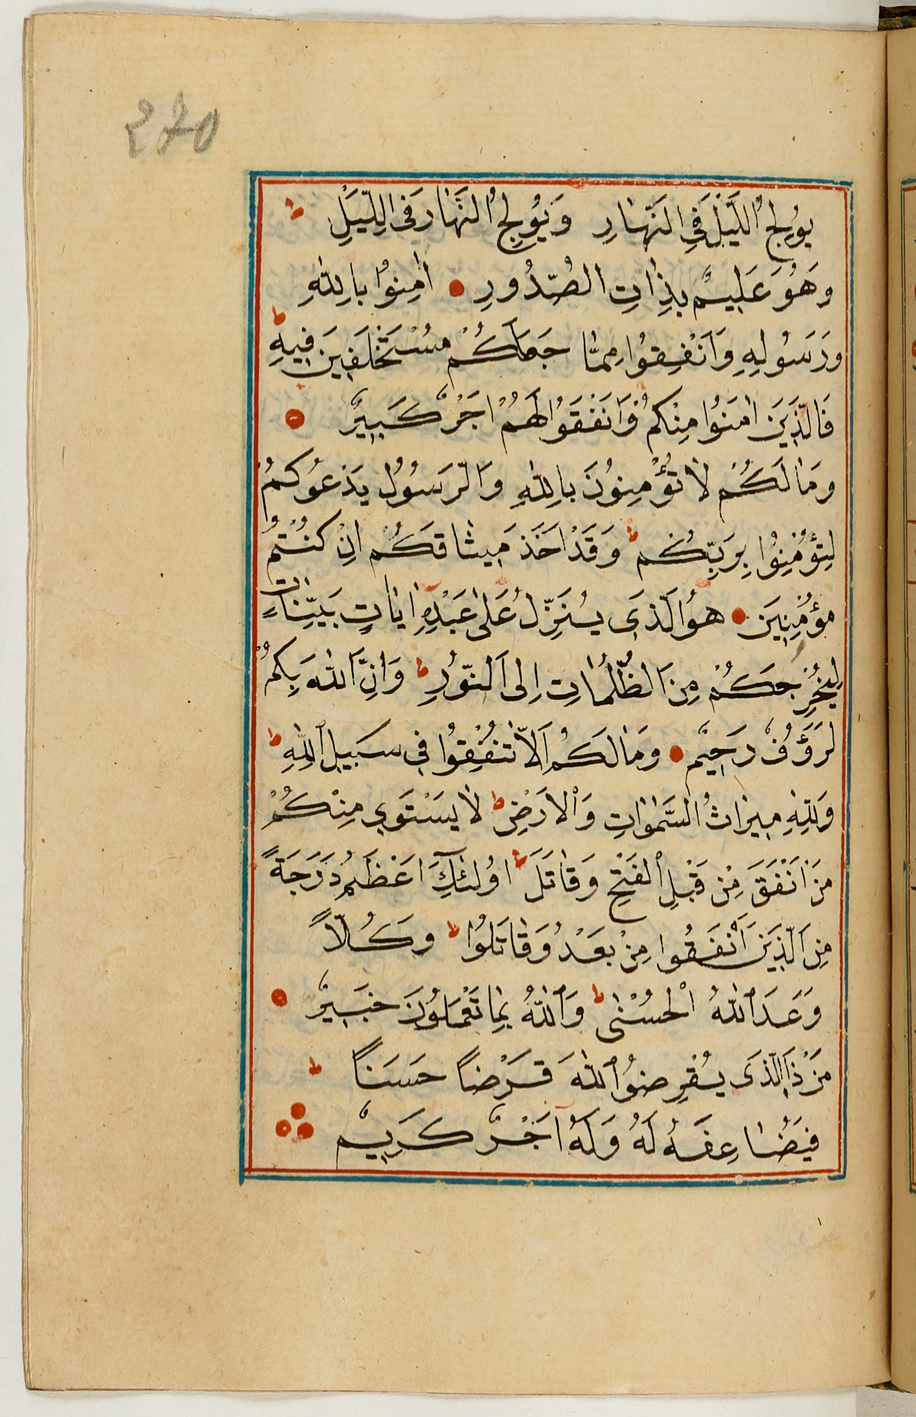 270
يُولِجُ الَّيْلَ فِي النَّهَارِ وَيُولِجُ النَّهَارَ فِي الَّيْلِ ط
وَهُوَ عَلِيمٌ بِذَاتِ الصُّدُورِ اٰمِنُوا بِاللّٰهِ
وَرَسُولِهِ وَاَنْفِقُوا مِمَّا جَعَلَكُمْ مُسْتَخْلَفِينَ فِيهِ ط
فَالَّذِينَ اٰمَنُوا مِنْكُمْ وَاَنْفَقُوا لَهُمْ اَجْرٌ كَبِيرٌ
وَمَا لَكُمْ لَا تُؤْمِنُونَ بِاللّٰهِ وَالرَّسُولُ يَدْعُوكُمْ
لِتُؤْمِنُوا بِرَبِّكُمْ ط وَقَدْ اَخَذَ مِيثَاقَكُمْ اِنْ كُنْتُمْ
مُؤْمِنِينَ هُوَ الَّذِي يُنَزِّلُ عَلٰى عَبْدِهِ اٰيَاتٍ بَيِّنَاتٍ
لِيُخْرِجَكُمْ مِنَ الظُّلُمَاتِ اِلَى النُّورِ ط وَاِنَّ اللّٰهَ بِكُمْ
لَرَؤُفٌ رَحِيمٌ وَمَا لَكُمْ اَلَّا تُنْفِقُوا فِي سَبِيلِ اللّٰهِ ط
وَلِلّٰهِ مِيرَاثُ السَّمٰوَاتِ وَالْاَرْضِ ط لَا يَسْتَوِي مِنْكُمْ
مَنْ اَنْفَقَ مِنْ قَبْلِ الْفَتْحِ وَقَاتَلَ ط اُولٰئِكَ اَعْظَمُ دَرَجَةً
مِنَ الَّذِينَ اَنْفَقُوا مِنْ بَعْدُ وَقَاتَلُوا ط وَكُلًّا
وَعَدَ اللّٰهُ الْحُسْنٰى ط وَاللّٰهُ بِمَا تَعْمَلُونَ خَبِيرٌ
مَنْ ذَا الَّذِي يُقْرِضُ اللّٰهَ قَرْضًا حَسَنًا ط
فَيُضَاعِفَهُ لَهُ وَلَهُ اَجْرٌ كَرِيمٌ